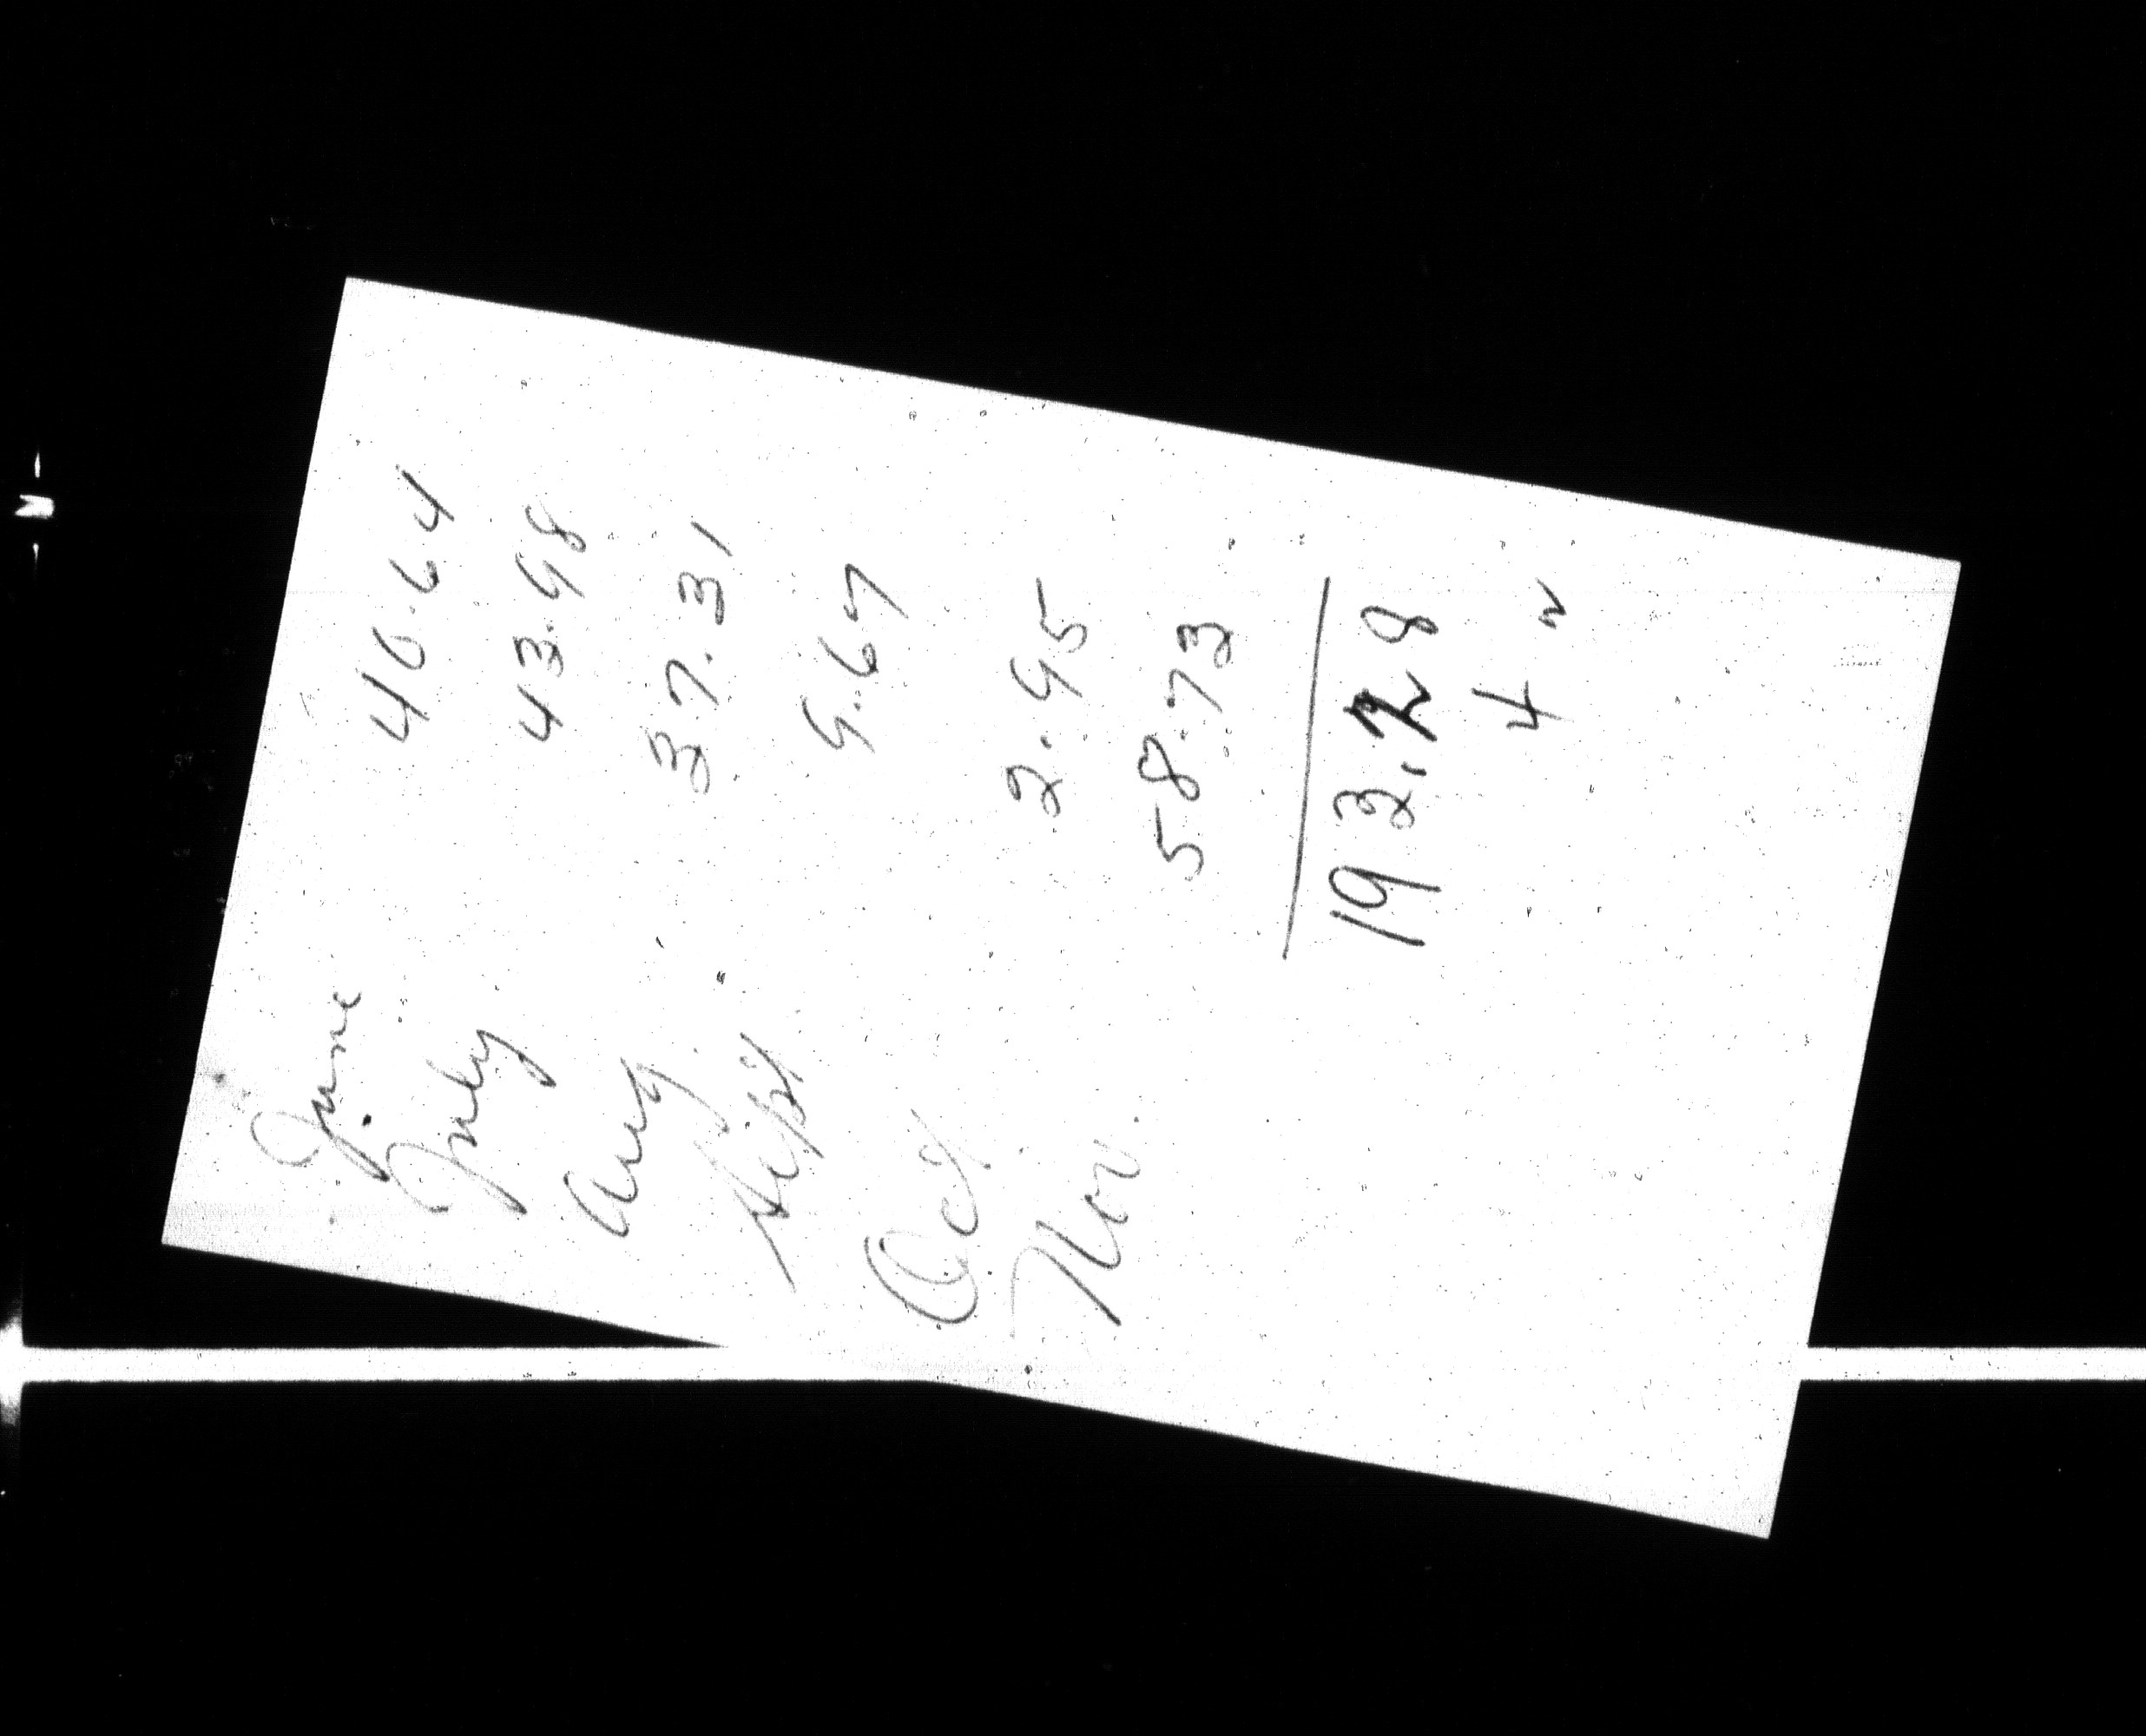 June 40.64
July 43.98
Aug. 37.31
Sept 9.67
Oct 2.95
Nov. 58.73
193.28
4 2